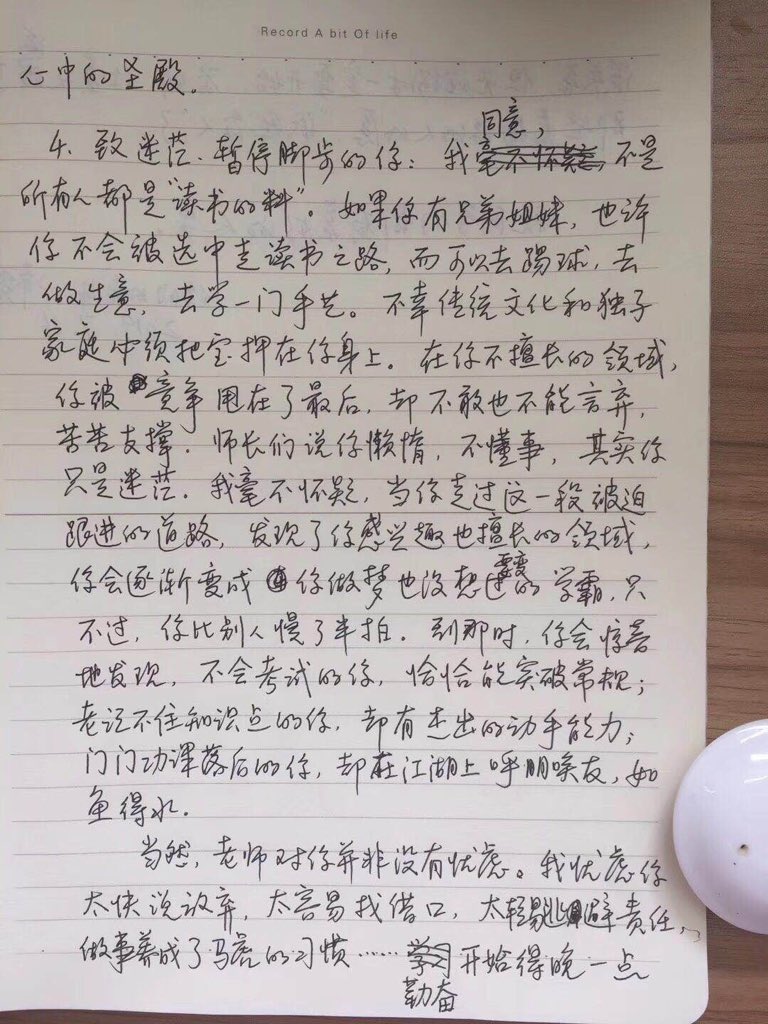 Record A bit Of life
心中的圣殿。
同意，
4. 致迷茫、暂停脚步的你：我毫不怀疑，不是
所有人都是“读书的料”。如果你有兄弟姐妹，也许
你不会被选中走读书之路，而可以去踢球，去
做生意，去学一门手艺。不幸传统文化和独子
家庭中须把宝押在你身上。在你不擅长的领域，
你被竞争甩在了最后，却不敢也不能言弃，
苦苦支撑。师长们说你懒惰，不懂事，其实你
只是迷茫。我毫不怀疑，当你走过这一段被迫
跟进的道路，发现了你感兴趣也擅长的领域，
你会逐渐变成你做梦也没想过要变的学霸，只
不过，你比别人慢了半拍。到那时，你会惊喜
地发现，不会考试的你，恰恰能突破常规；
老记不住知识点的你，却有杰出的动手能力；
门门功课落后的你，却在江湖上呼朋唤友，如
鱼得水。
当然，老师对你并非没有忧虑。我忧虑你
太快说放弃，太容易找借口，太轻易逃避责任，
做事养成了马虎的习惯……学习开始得晚一点
勤奋